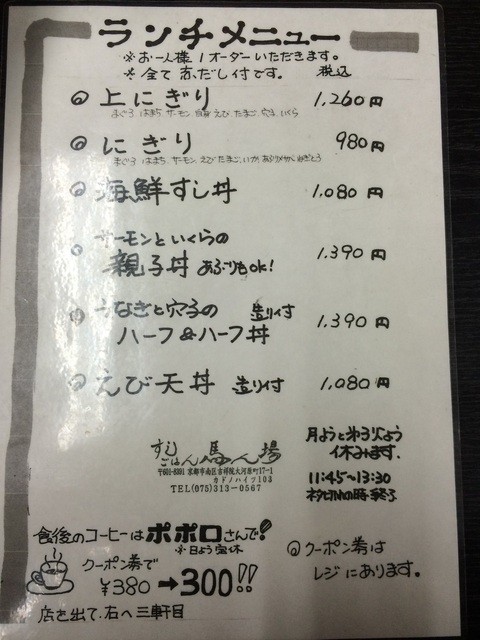 ランチメニュー
※お一人様1オーダーいただきます。
※全て赤だし付です。 税込
上にぎり 1,260円
まぐろ、はまち、サーモン、白身、えび、たまご、穴子、いくら
にぎり 980円
まぐろ、はまち、サーモン、えび、たまご、いか
海鮮すし丼 1,080円
サーモンといくらの
親子丼 あぶりもok! 1,390円
うなぎと穴子の 造り付
ハーフ&ハーフ丼 1,390円
えび天丼 造り付 1,080円
すし
ごはん 馬ん場
〒601-8391 京都市南区吉祥院大河原町17-1
カドノハイツ103
TEL(075)313-0567
月ようと第3日よう
休みます。
11:45~13:30
ネタ切れの時、終了
食後のコーヒーはポポロさんで!
※日よう定休
クーポン券で
¥380→300!!
店を出て、右へ三軒目
クーポン券は
レジにあります。